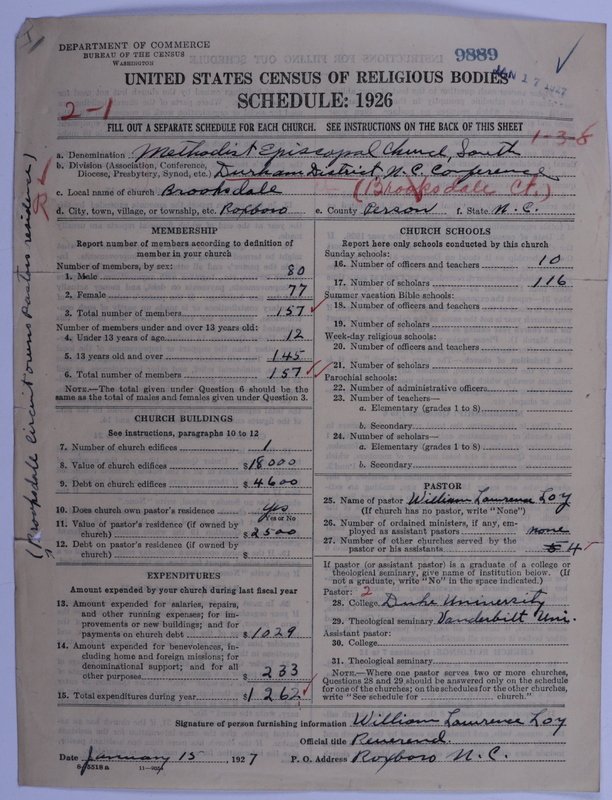 DEPARTMENT OF COMMERCE
BUREAU OF THE CENSUS
WASHINGTON
9889
JAN 17 1927
UNITED STATES CENSUS OF RELIGIOUS BODIES
SCHEDULE: 1926
2-1
FILL OUT A SEPARATE SCHEDULE FOR EACH CHURCH. SEE INSTRUCTIONS ON THE BACK OF THIS SHEET
1-3-8
a. Denomination Methodist Episcopal Church, South
b. Division (Association, Conference, Diocese, Presbytery, Synod, etc.) Durham District, N.C. Conference
c. Local name of church Brooksdale (Brooksdale Ct.)
d. City, town, village, or township, etc. Roxboro e. County Person f. State N.C.
MEMBERSHIP
Report number of members according to definition of
member in your church
Number of members, by sex:
1. Male 80
2. Female 77
3. Total number of members 157
Number of members under and over 13 years old:
4. Under 13 years of age 12
5. 13 years old and over 145
6. Total number of members 157
NOTE.—The total given under Question 6 should be
the same as the total of males and females given under Question 3.
CHURCH BUILDINGS
See instructions, paragraphs 10 to 12
7. Number of church edifices 1
8. Value of church edifices $18000
9. Debt on church edifices $4600
10. Does church own pastor's residence yes
Yes or No
11. Value of pastor's residence (if owned by
church) $2500
12. Debt on pastor's residence (if owned by
church) $
EXPENDITURES
Amount expended by your church during last fiscal year
13. Amount expended for salaries, repairs,
and other running expenses; for im-
provements or new buildings; and for
payments on church debt $1029
14. Amount expended for benevolences, in-
cluding home and foreign missions; for
denominational support; and for all
other purposes $233
15. Total expenditures during year $1262
CHURCH SCHOOLS
Report here only schools conducted by this church
Sunday schools:
16. Number of officers and teachers 10
17. Number of scholars 116
Summer vacation Bible schools:
18. Number of officers and teachers
19. Number of scholars
Week-day religious schools:
20. Number of officers and teachers
21. Number of scholars
Parochial schools:
22. Number of administrative officers
23. Number of teachers—
a. Elementary (grades 1 to 8)
b. Secondary
24. Number of scholars—
a. Elementary (grades 1 to 8)
b. Secondary
PASTOR
25. Name of pastor William Lawrence Loy
(If church has no pastor, write "None")
26. Number of ordained ministers, if any, em-
ployed as assistant pastors none
27. Number of other churches served by the
pastor or his assistants 5 4
If pastor (or assistant pastor) is a graduate of a college or
theological seminary, give name of institution below. (If
not a graduate, write "No" in the space indicated.)
Pastor: 2
28. College Duke University
29. Theological seminary Vanderbilt Uni.
Assistant pastor:
30. College
31. Theological seminary
NOTE.—Where one pastor serves two or more churches,
Questions 28 and 29 should be answered only on the schedule
for one of the churches; on the schedules for the other churches,
write "See schedule for church."
Signature of person furnishing information William Lawrence Loy
Official title Reverend
Date January 15, 1927 P. O. Address Roxboro N.C.
8-5518a 11-9054
(Brooksdale Circuit owns Pastors residence)